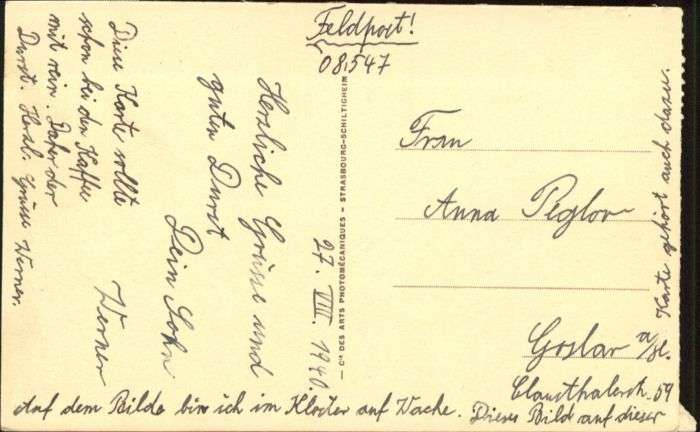 Feldpost!
08547
Herzliche Grüsse und
guten Durst
Dein Sohn
Werner
27. VIII. 1940.
Diese Karte sollte
schon bei den Kaffee
mit rein. Daher der
Durst. Herzl. Grüsse Werner.
— Cie DES ARTS PHOTOMÉCANIQUES — STRASBOURG-SCHILTIGHEIM
Frau
Anna Peglov
Goslar a/H.
Clausthalerstr. 59
Auf dem Bilde bin ich im Kloster auf Wache. Dieses Bild auf dieser
Karte gehört auch dazu.